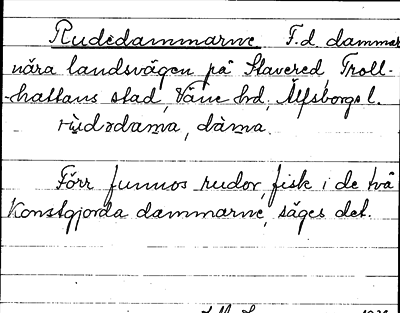 Rudedammarne F.d. dammar
nära landsvägen på Stavered, Troll-
-hättans stad, Väne hd, Älfsborgs l.
rùdədama, dàma.
Förr funnos rudor, fisk, i de två
Konstgjorda dammarne, säges det.